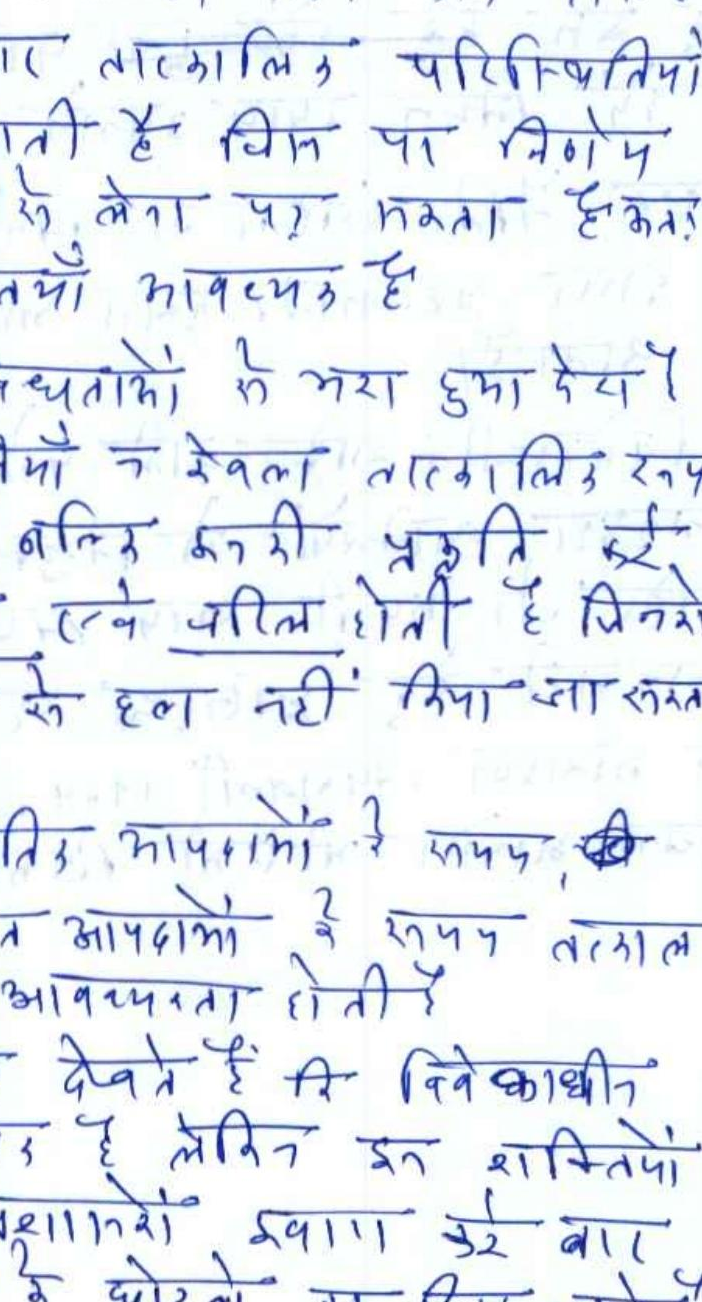 बार तात्कालिक परिस्थितियों
जाती है जिन पर निर्णय
से लेना पड़ सकता है अतः
शक्तियाँ आवश्यक है
विविधताओं से भरा हुआ देश है
न केवल तात्कालिक रूप
बल्कि उनकी प्रकृति कई
एवं जटिल होती है जिनको
से हल नहीं किया जा सकता
आपदाओं के समय,
आपदाओं के समय तत्काल
आवश्यकता होती है
देखते हैं कि विवेकाधीन
है लेकिन इन शक्तियों
प्रशासकों द्वारा कई बार
के